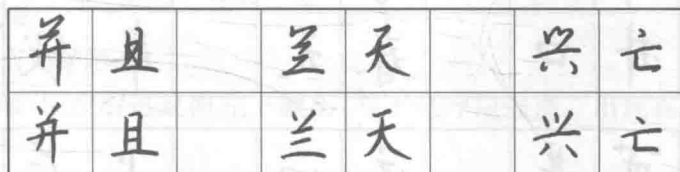 并且 兰天 兴亡
并且 兰天 兴亡